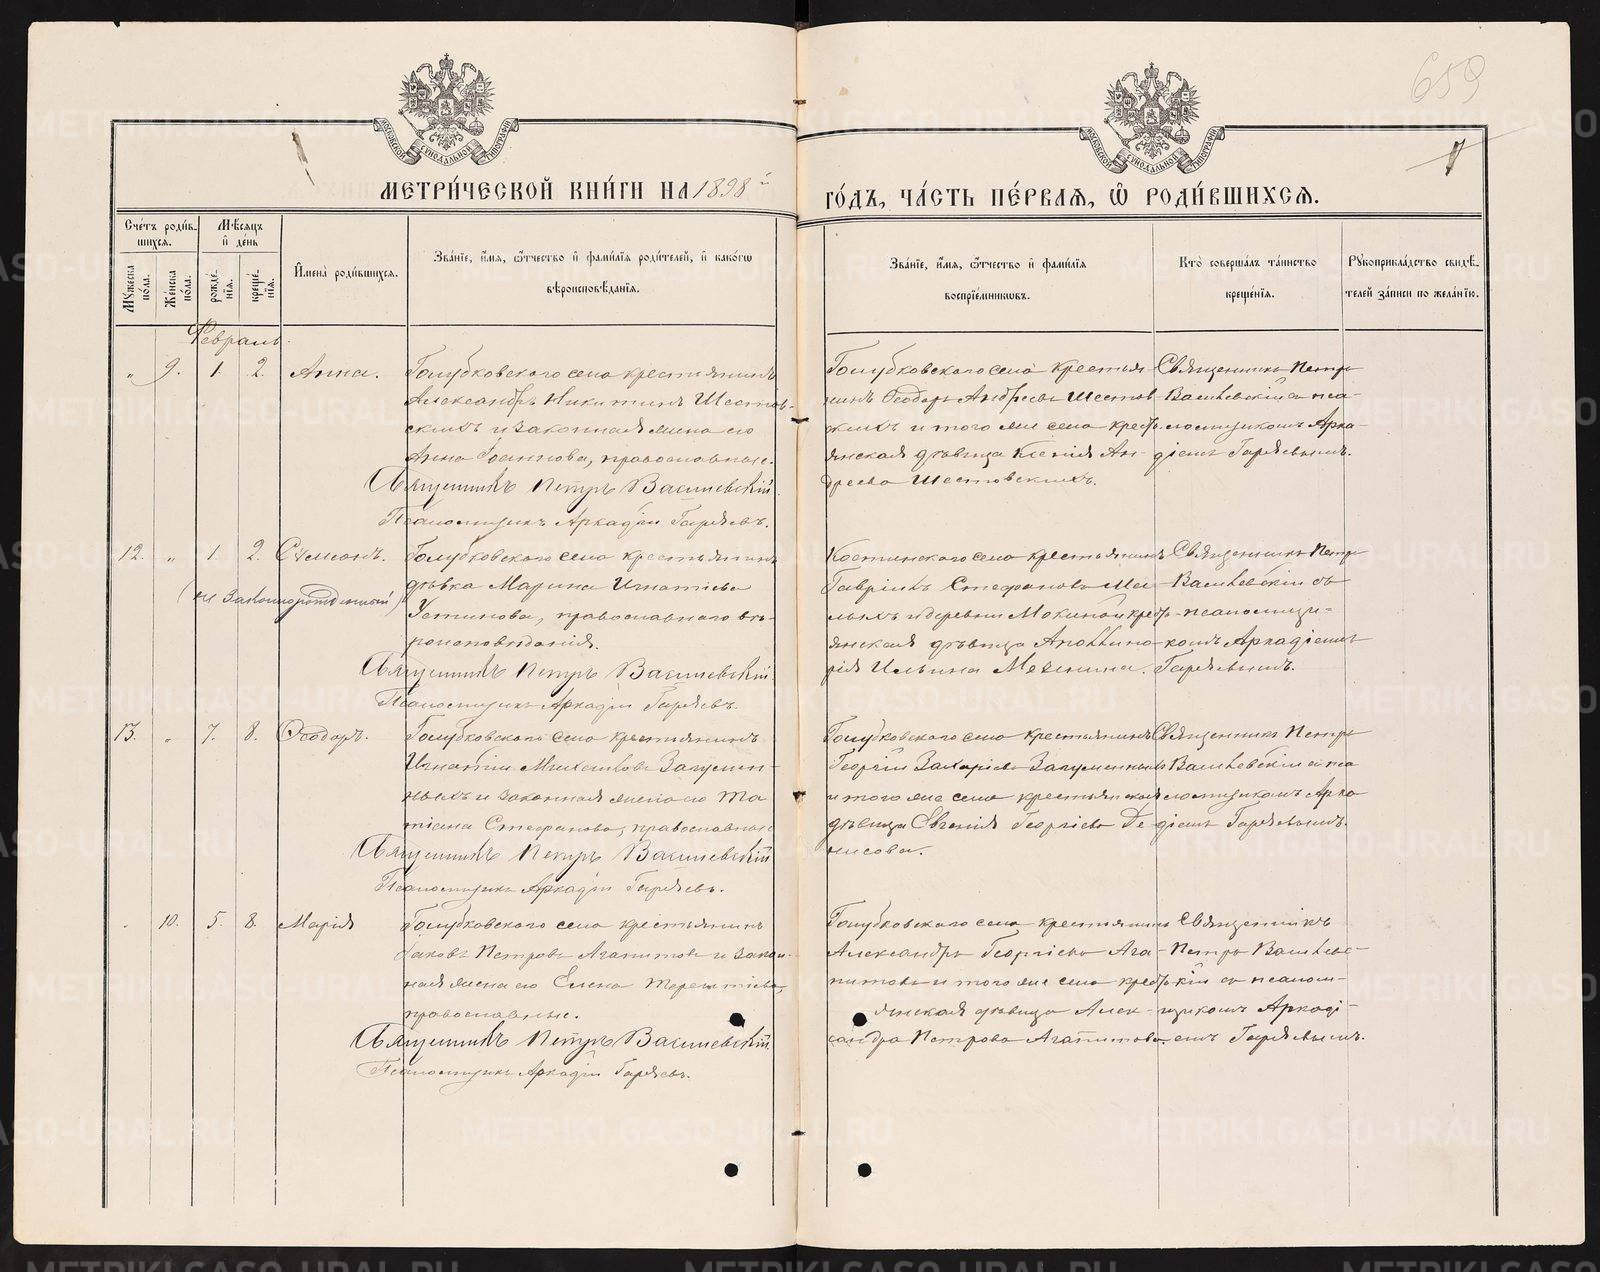 659
МЕТРИ́ЧЕСКОЙ КНИ́ГИ НА 1898 й ГО́ДЪ, ЧА́СТЬ ПЕ́РВАѦ, Ѽ РОДИ́ВШИХСѦ.
Сче́тъ роди́в-
шихсѧ.
Мѣ́сѧцъ
и҆ де́нь
Мꙋ́жеска
по́ла.
Же́нска
по́ла.
рожде́-
нїѧ.
креще́-
нїѧ.
И҆мена̀ роди́вшихсѧ.
Зва́нїе, и҆́мѧ, ѻ҆́тчество и҆ фами́лїѧ роди́телей, и҆ како́гѡ
вѣроисповѣ́данїѧ.
Зва́нїе, и҆́мѧ, ѻ҆́тчество и҆ фами́лїѧ
воспрїе́мниковъ.
Кто̀ соверша́лъ та́инство
креще́нїѧ.
Рꙋкоприкла́дство свидѣ́-
телей за́писи по жела́нїю.
Февраль.
" 9. 1. 2. Анна.
Голубковскаго села крестьянинъ
Александръ Никитинъ Шестов-
скихъ и законная жена его
Анна Іоаннова, православные.
Священникъ Петръ Василевскій.
Псаломщикъ Аркадій Гаряевъ.
Голубковскаго села крестья-
нинъ Ѳеодоръ Андреевъ Шестов-
скихъ и того же села кресть-
янская дѣвица Ксенія Ан-
дреева Шестовскихъ.
Священникъ Петръ
Василевскій съ пса-
ломщикомъ Арка-
діемъ Гаряевымъ.
12. " 1. 2. Сѵмеонъ.
(незаконнорожденный)
Голубковскаго села крестьянинъ
дѣвка Марина Игнатіева
Устинова, православнаго вѣ-
роисповѣданія.
Священникъ Петръ Василевскій.
Псаломщикъ Аркадій Гаряевъ.
Костинскаго села крестьянинъ
Гавріилъ Стефановъ
и деревни Мокиной кресть-
янская дѣвица Аполлина-
рія Ильина
Священникъ Петръ
Василевскій съ
псаломщи-
комъ Аркадіемъ
Гаряевымъ.
13. " 7. 8. Ѳеодоръ.
Голубковскаго села крестьянинъ
Игнатій Михаиловъ Загумен-
ныхъ и законная жена его Та-
тіана Стефанова, православные.
Священникъ Петръ Василевскій
Псаломщикъ Аркадій Гаряевъ.
Голубковскаго села крестьянинъ
Георгій Захаріевъ Загуменныхъ
и того же села крестьянская
дѣвица Евгенія Георгіева Де-
нисова.
Священникъ Петръ
Василевскій съ пса-
ломщикомъ Арка-
діемъ Гаряевымъ.
" 10. 5. 8. Марія
Голубковскаго села крестьянинъ
Іаковъ Петровъ Агапитовъ и закон-
ная жена его Елена Терентіева,
православные.
Священникъ Петръ Василевскій
Псаломщикъ Аркадій Гаряевъ.
Голубковскаго села крестьянинъ
Александръ Георгіевъ Ага-
питовъ и того же села кресть-
янская дѣвица Алек-
сандра Петрова Агапитова.
Священникъ
Петръ Василевс-
кій съ псалом-
щикомъ Аркаді-
емъ Гаряевымъ.